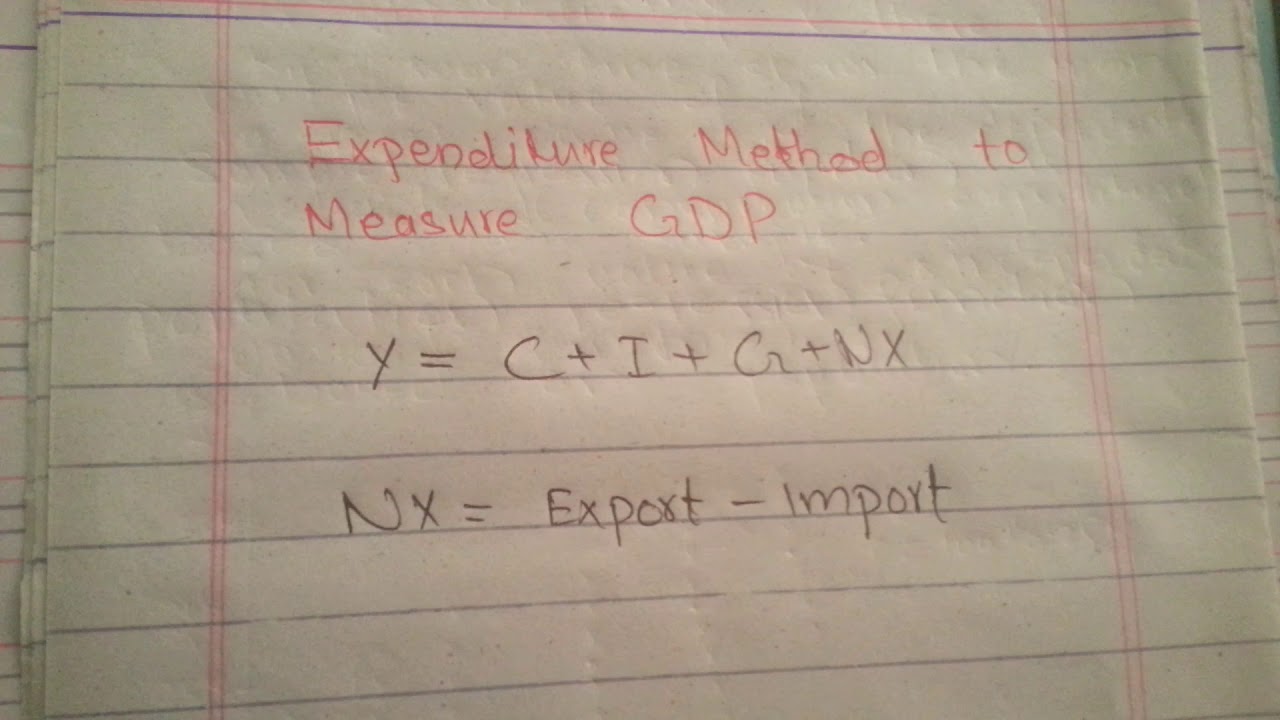 Expenditure Method to
Measure GDP
Y = C + I + G + NX
NX = Export - Import